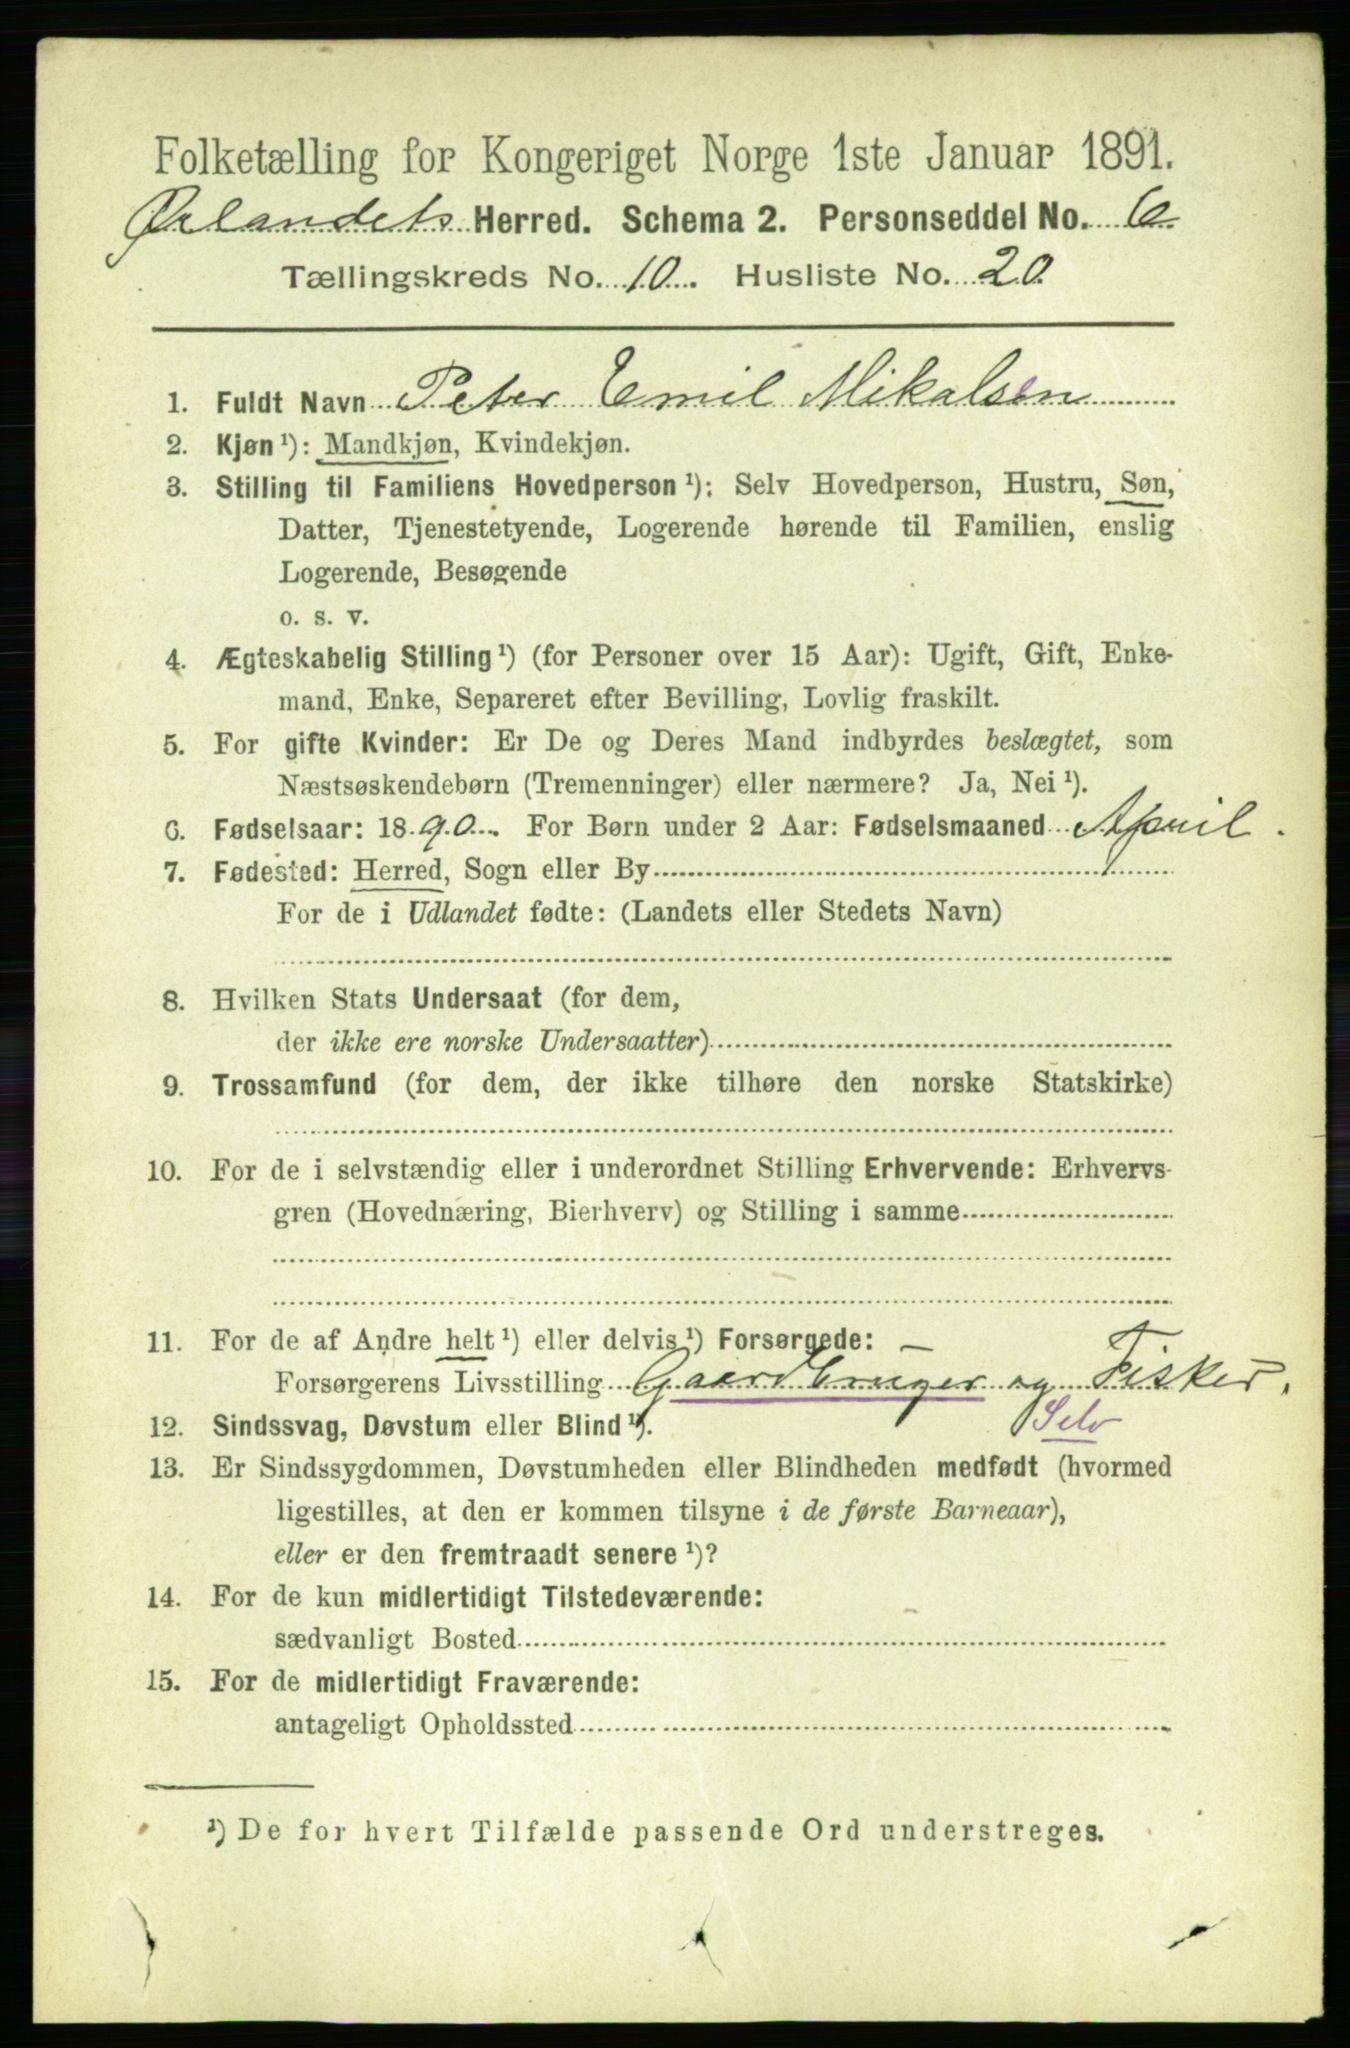 Folketælling for Kongeriget Norge 1ste Januar 1891.
Ørlandets Herred. Schema 2. Personseddel No. 6
Tællingskreds No. 10. Husliste No. 20.
1. Fuldt Navn Peter Emil Mikalsen
2. Kjøn ¹): Mandkjøn, Kvindekjøn.
3. Stilling til Familiens Hovedperson ¹): Selv Hovedperson, Hustru, Søn,
Datter, Tjenestetyende, Logerende hørende til Familien, enslig
Logerende, Besøgende
o. s. v.
4. Ægteskabelig Stilling ¹) (for Personer over 15 Aar): Ugift, Gift, Enke-
mand, Enke, Separeret efter Bevilling, Lovlig fraskilt.
5. For gifte Kvinder: Er De og Deres Mand indbyrdes beslægtet, som
Næstsøskendebørn (Tremenninger) eller nærmere? Ja, Nei ¹).
6. Fødselsaar: 1890. For Børn under 2 Aar: Fødselsmaaned April.
7. Fødested: Herred, Sogn eller By
For de i Udlandet fødte: (Landets eller Stedets Navn)
8. Hvilken Stats Undersaat (for dem,
der ikke ere norske Undersaatter)
9. Trossamfund (for dem, der ikke tilhøre den norske Statskirke)
10. For de i selvstændig eller i underordnet Stilling Erhvervende: Erhvervs-
gren (Hovednæring, Bierhverv) og Stilling i samme
11. For de af Andre helt ¹) eller delvis ¹) Forsørgede:
Forsørgerens Livsstilling Gaardbruger og Fisker.
Selv
12. Sindssvag, Døvstum eller Blind ¹).
13. Er Sindssygdommen, Døvstumheden eller Blindheden medfødt (hvormed
ligestilles, at den er kommen tilsyne i de første Barneaar),
eller er den fremtraadt senere ¹)?
14. For de kun midlertidigt Tilstedeværende:
sædvanligt Bosted
15. For de midlertidigt Fraværende:
antageligt Opholdssted
¹) De for hvert Tilfælde passende Ord understreges.